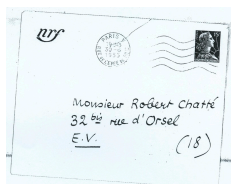 nrf
PARIS
Monsieur Robert Chatté
32 bis rue d'Orsel
E.V.
(18)